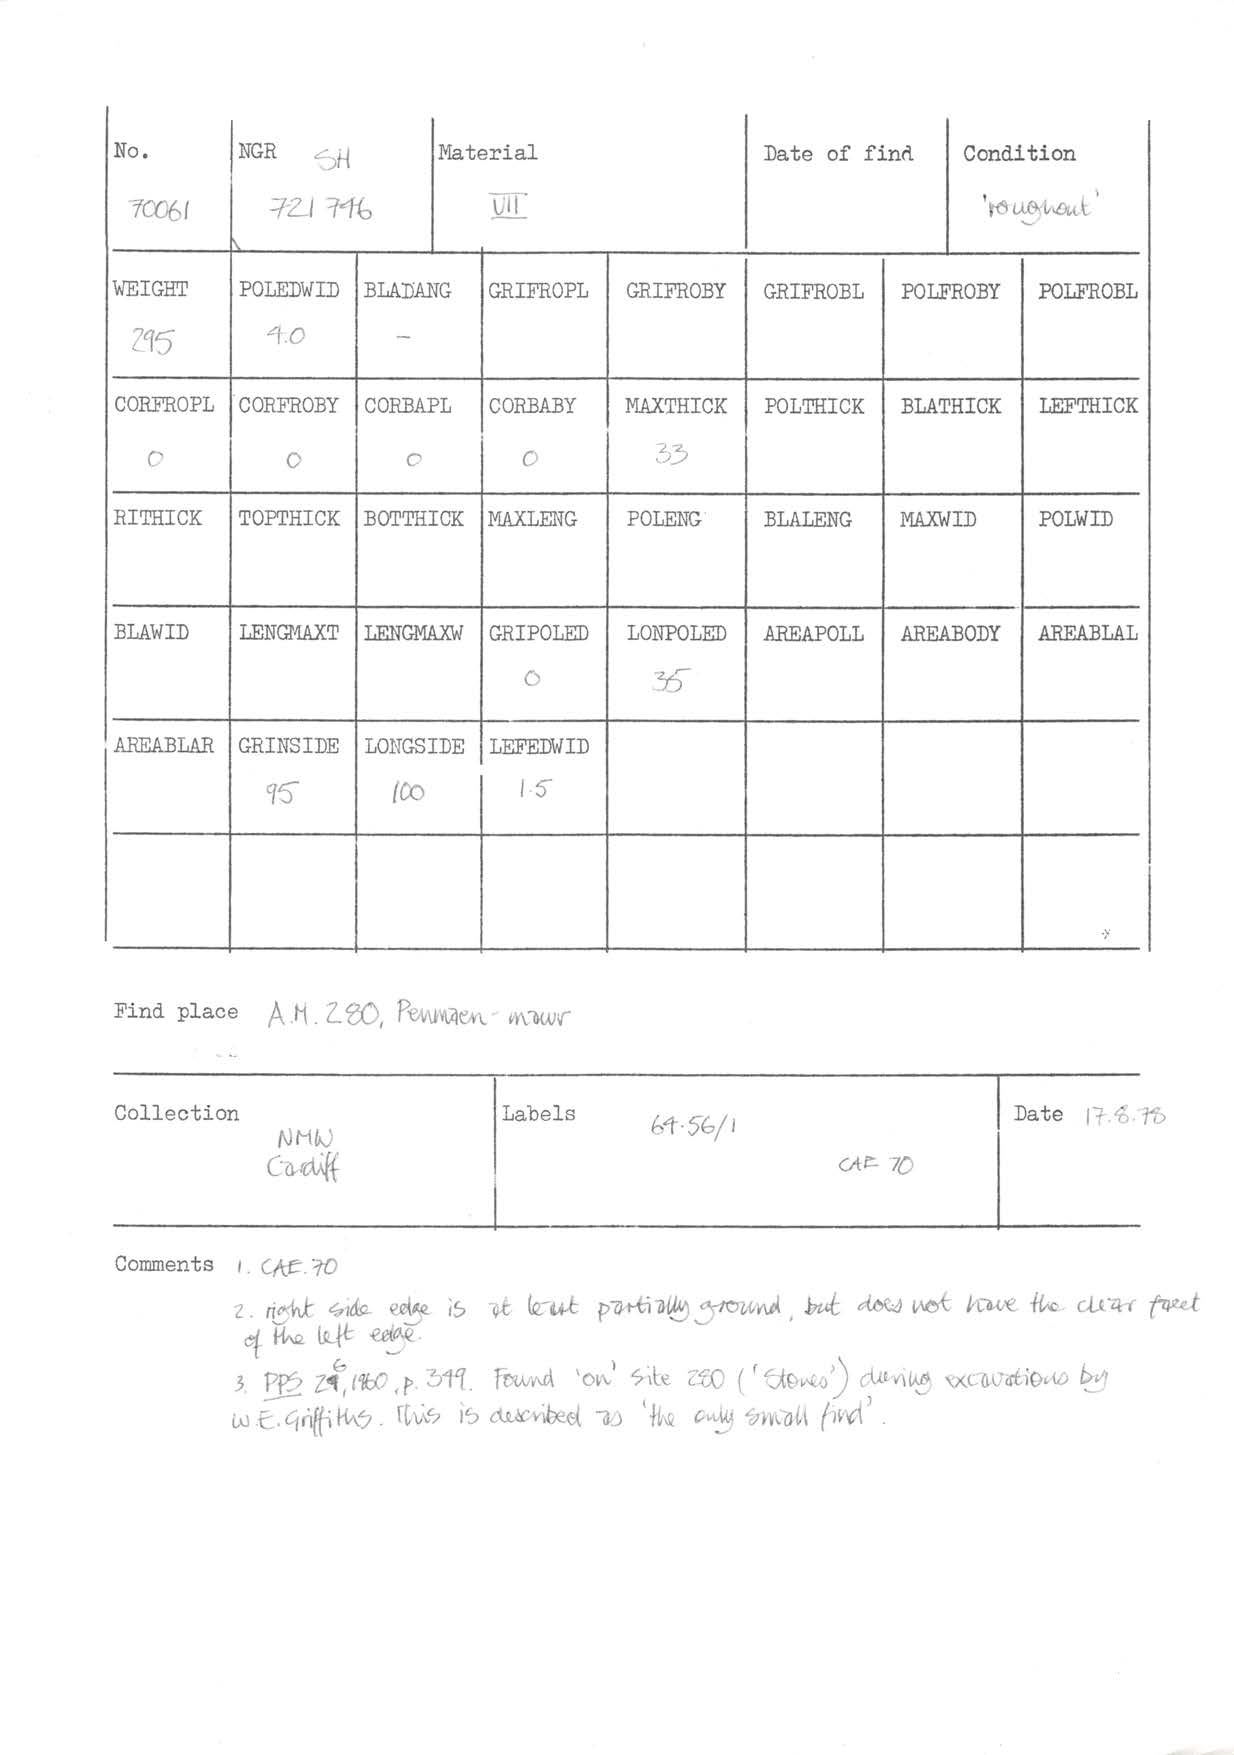 No. NGR SH Material Date of find Condition
70061 721 746 VII 'roughout'
WEIGHT POLEDWID BLADANG GRIFROPL GRIFROBY GRIFROBL POLFROBY POLFROBL
295 4.0 –
CORFROPL CORFROBY CORBAPL CORBABY MAXTHICK POLTHICK BLATHICK LEFTHICK
0 0 0 0 33
RITHICK TOPTHICK BOTTHICK MAXLENG POLENG BLALENG MAXWID POLWID
BLAWID LENGMAXT LENGMAXW GRIPOLED LONPOLED AREAPOLL AREABODY AREABLAL
0 35
AREABLAR GRINSIDE LONGSIDE LEFEDWID
95 100 1.5
Find place A.M. 280, Penmaen-mawr
Collection Labels 64.56/1 Date 17.8.78
NMW
Cardiff CAE 70
Comments 1. CAE.70
2. right side edge is at least partially ground, but does not have the clear facet
of the left edge.
3. PPS 26, 1960, p. 349. Found 'on' Site 280 ('Stones') during excavations by
W.E. Griffiths. This is described as 'the only small find'.